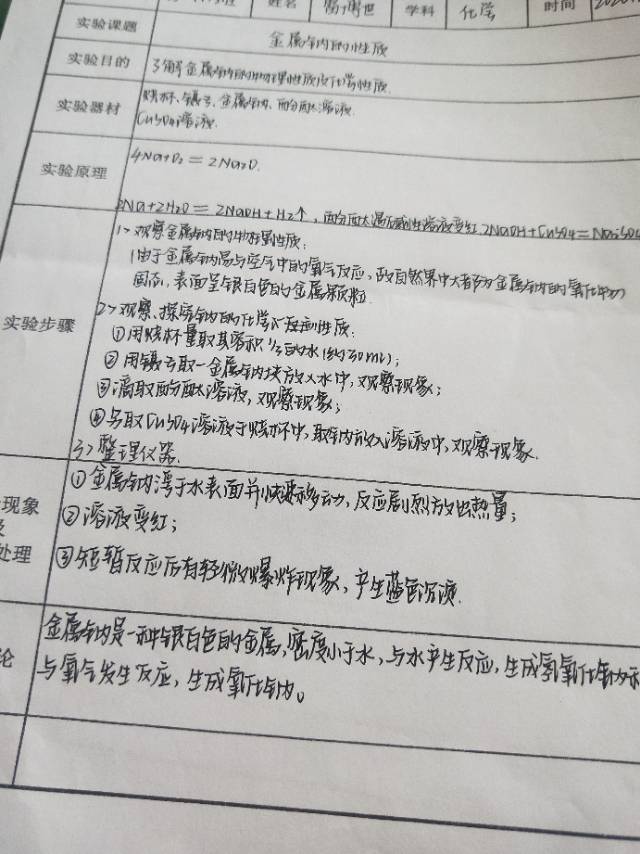 姓名 学科 化学 时间
实验课题 金属钠的性质
实验目的 了解金属钠的物理性质及化学性质.
实验器材 烧杯、镊子、金属钠、酚酞溶液
CuSO4溶液.
实验原理 4Na+O2=2Na2O.
2Na+2H2O=2NaOH+H2↑,酚酞遇碱性溶液变红.2NaOH+CuSO4=Na2SO4
实验步骤
1>观察金属钠的物理性质:
(由于金属钠易与空气中的氧气反应,故自然界中大都为金属钠的氧化物)
固态,表面呈银白色的金属颗粒.
2>观察、探究钠的化学反应性质:
①用烧杯量取其容积1/3的水(约30mL);
②用镊子取一金属钠块放入水中,观察现象;
③滴取酚酞溶液,观察现象;
④另取CuSO4溶液于烧杯中,取钠放入溶液中,观察现象.
3>整理仪器.
现象
处理
①金属钠浮于水表面并快速移动,反应剧烈放出热量;
②溶液变红;
③短暂反应后有轻微爆炸现象,产生蓝色沉淀.
论
金属钠是一种银白色的金属,密度小于水,与水产生反应,生成氢氧化钠和
与氧气发生反应,生成氧化钠。